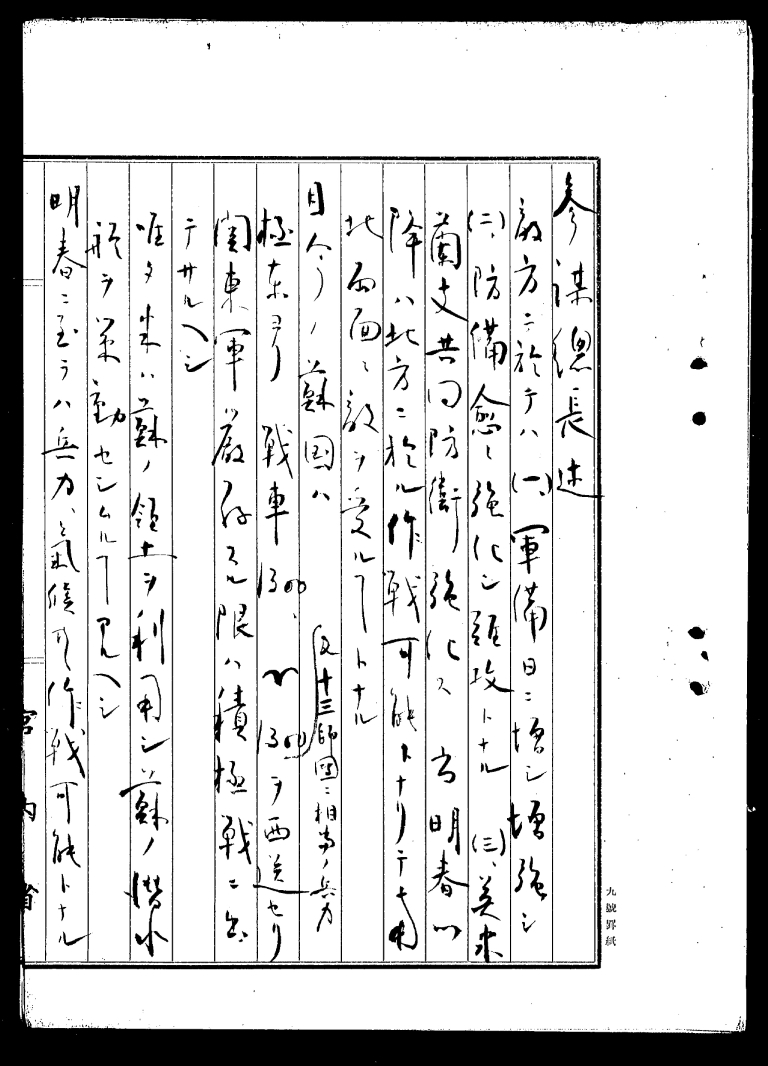 参謀總長述
敵方ニ於テハ(一)、軍備日ニ増シ増強シ
(二)、防備愈々強化シ難攻トナル (三)、英米
蘭支共同防衛ヲ強化ス 尚明春以
降ハ北方ニ於ル作戦可能トナリテ南
北両面ニ敵ヲ受ルコトトナル
目今ノ蘇国ハ
極東ヨリ 戦車1300、 1300ヲ西送セリ
及十三師團ニ相当ノ兵力
関東軍ハ厳存スル限ハ積極戦ニ出
テサルヘシ
唯タ米ハ蘇ノ領土ヲ利用シ蘇ノ潜水
艇ヲ策動セシムルコトアルヘシ
明春ニ至ラハ兵力、氣候共作戦可能トナル
宮内省
九號罫紙